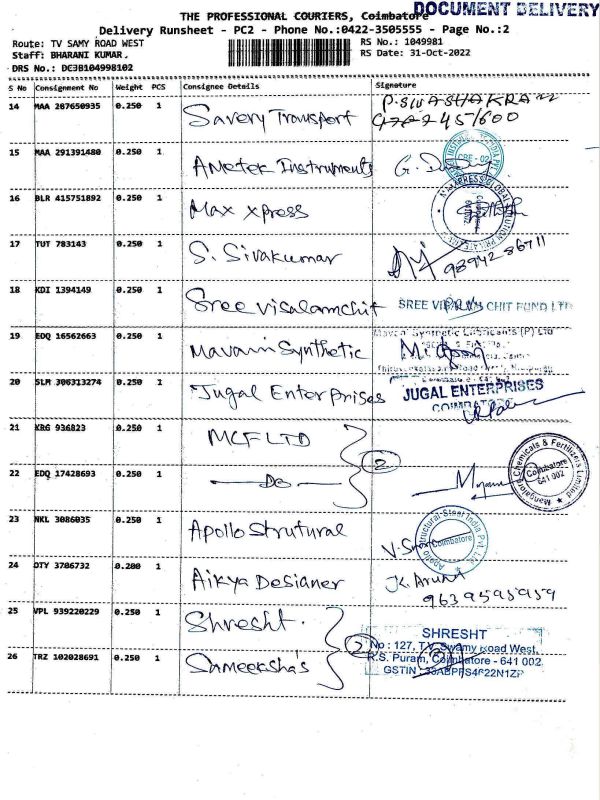 DOCUMENT DELIVERY
THE PROFESSIONAL COURIERS, Coimbatore
Delivery Runsheet - PC2 - Phone No.:0422-3505555 - Page No.:2
Route: TV SAMY ROAD WEST RS No.: 1049981
Staff: BHARANI KUMAR. RS Date: 31-Oct-2022
DRS No.: DC3B104998102
S No Consignment No Weight PCS Consignee Details Signature
14 MAA 287650935 0.250 1 Savery Transport
15 MAA 291391480 0.250 1 Ametek Instruments G.
CBE - 02
16 BLR 415751892 0.250 1 Max xpress
17 TUT 783143 0.250 1 S. Sivakumar 98942 86711
18 KDI 1394149 0.250 1 Sree visalamchit SREE VISALAM CHIT FUND LTD
19 EDQ 16562663 0.250 1 Mavain Synthetic Synthetic Lubricants (P) Ltd
20 SLM 306313274 0.250 1 Jugal Enterprises JUGAL ENTERPRISES
COIMBATORE
21 KRG 936823 0.250 1 MCF LTD
22 EDQ 17428693 0.250 1 — Do — 2
Mangalore Chemicals & Fertilisers Limited
Coimbatore
641 002
23 NKL 3086035 0.250 1 Apollo Strutural
Apollo Structural-Steel India Pvt. Ltd.
Coimbatore
24 OTY 3706732 0.200 1 Aikya Desianer K. Arun
9639595959
25 VPL 939220229 0.250 1 Shresht. SHRESHT
2 No : 127, T.V. Swamy Road West,
26 TRZ 102028691 0.250 1 Sameeksha's R.S. Puram, Coimbatore - 641 002
GSTIN : 33ABPFS4F22N1ZP